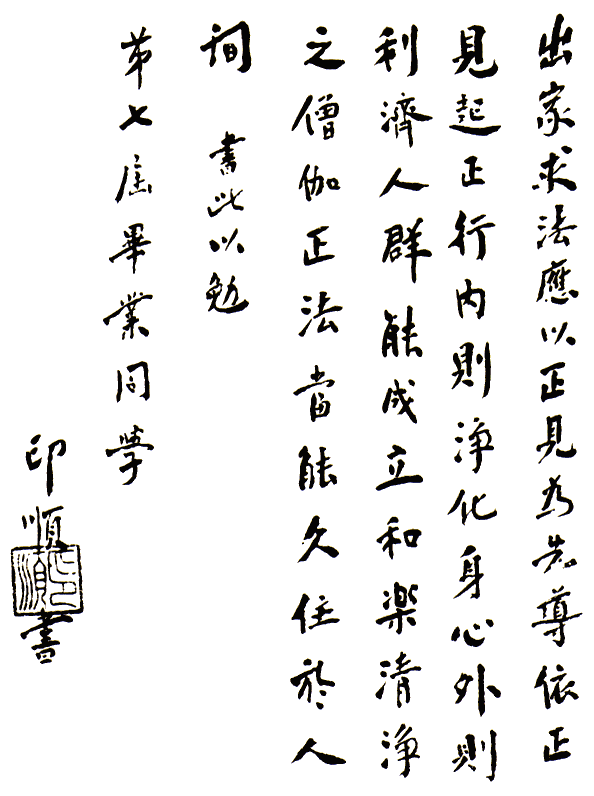 出家求法應以正見為先導依正
見起正行內則淨化身心外則
利濟人群能成立和樂清淨
之僧伽正法當能久住於人
間 書此以勉
第七屆畢業同學
印順書
印順